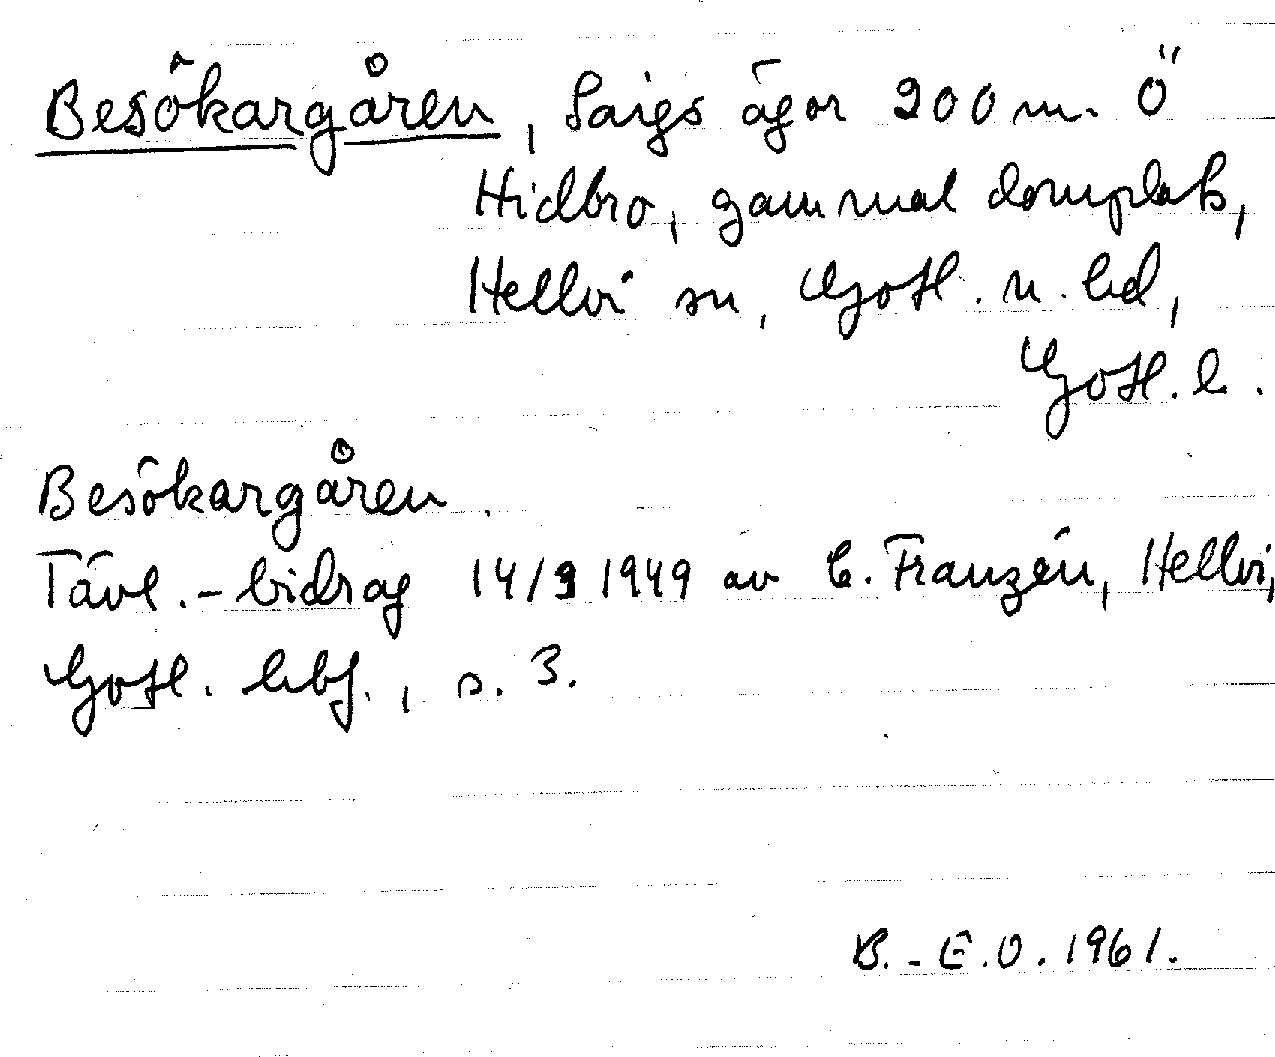 Besökargåren, Saigs ägor 200 m. Ö
Hidbro, gammal domplats,
Hellvi sn, Gotl. n. hd,
Gotl. l.
Besökargåren.
Tävl.-bidrag 14/9 1949 av C. Franzén, Hellvi,
Gotl. hbf., s. 3.
B.-E.O. 1961.